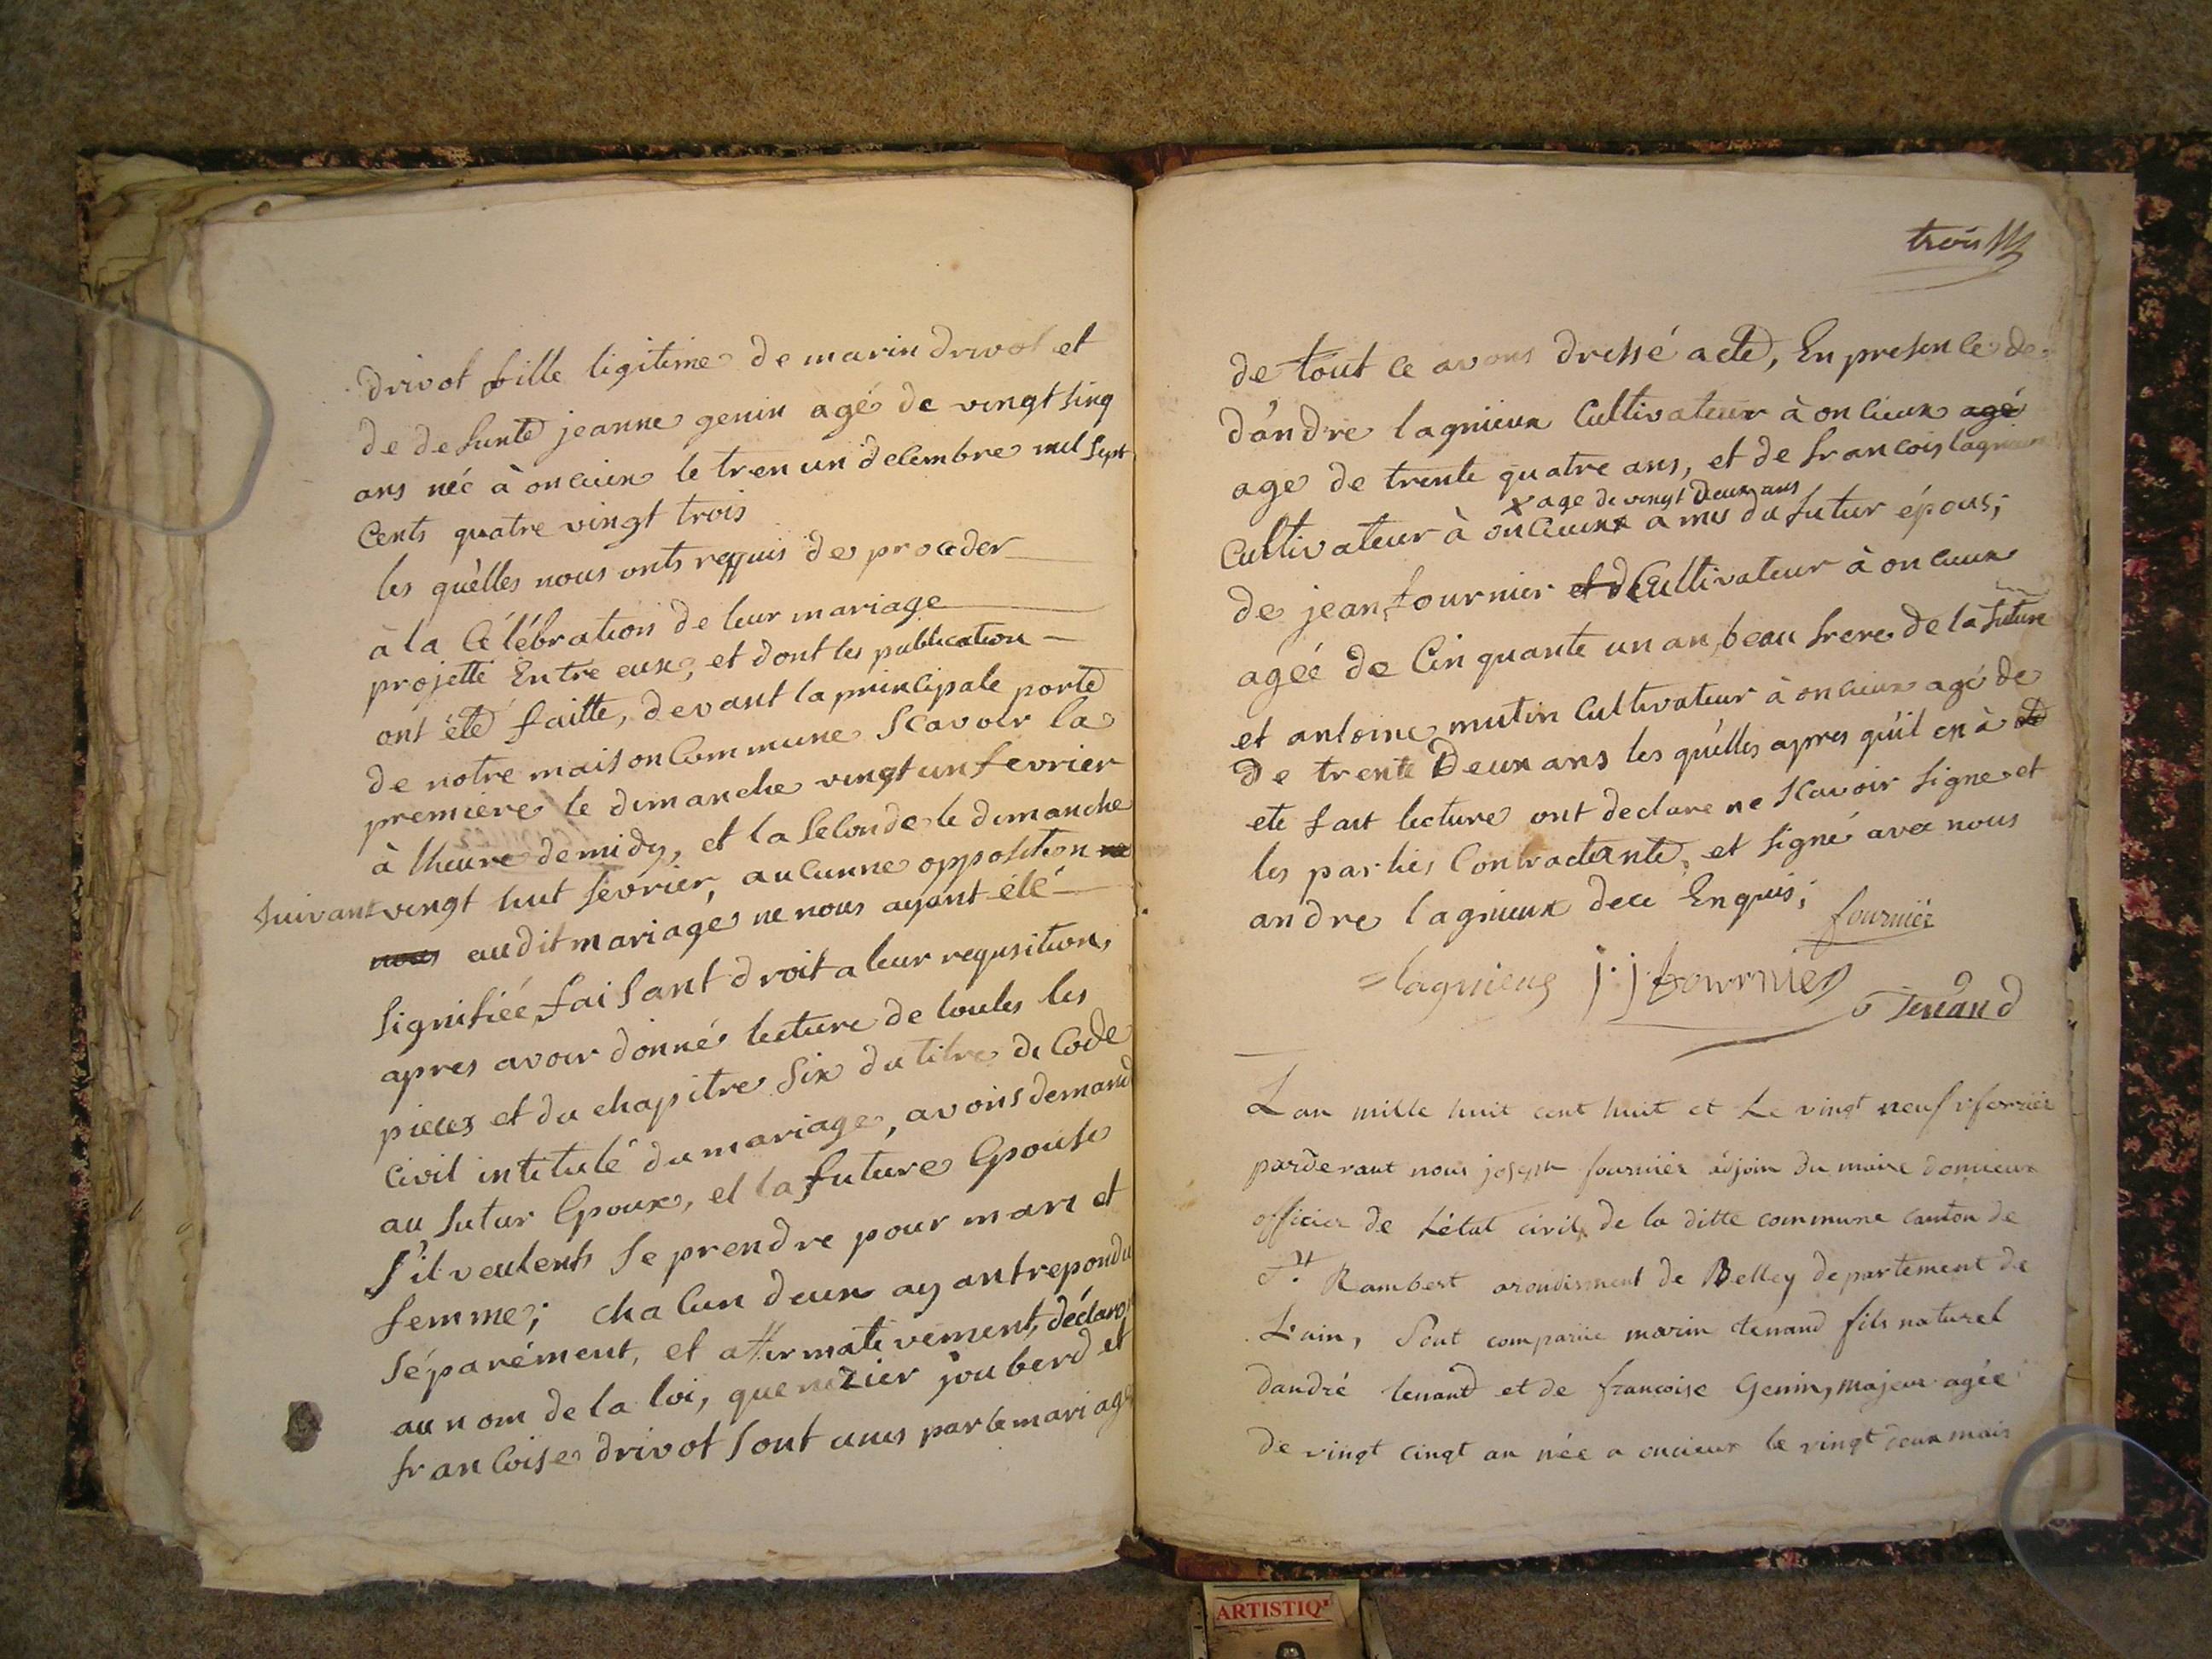 drivot fille ligitime de marin drivot et
de defunte jeanne genin agé de vingt sinq
ans néé à oncieux le tren un decembre mil sept
Cents quatre vingt trois
les quèlles nous onts requis de proceder
à la Célébration de leur mariage
projetté Entre eux, et dont les publication
ont été faitte, devant la principale porte
de notre maison Commune Scavoir la
premiere le dimanche vingt un fevrier
à lheure demidy, et la Seconde le dimanche
Suivant vingt huit fevrier, aucunne opposition ne
nous audit mariage ne nous ayant été
Signifiéé, faisant droit a leur requsition,
apres avoir donné lecture de toutes les
pieces et du chapitre Six du titre de Code
Civil intitulé du mariage, avons demand
au futur Epoux, et la future Epouse
s'il veulents Se prendre pour mari et
femme; chacun deux ayant repondu
Séparément, et affirmativement, déclaro
au nom de la loi, que nizier joubert et
francoise drivot Sont unis par le mariage
trois
de tout ce avons dressé acte, En presence de
d'andre lagnieux Cultivateur à oncieux agé
age de trente quatre ans, et de francois lagnieux
x age de vingt deux ans
Cultivateur à oncieux x amis du futur épous;
de jean fournier et d Cultivateur à oncieux
agéé de Cinquante un an, beau frere de la future
et antoine mutin Cultivateur à oncieux agé de
de trente Deux ans les quèlles apres qu'il en à été
ete fait lecture ont declare ne Scavoir Signe et
les parties Contractante, et signé avec nous
andre lagnieux dece Enquis;
fournier
lagnieux j. j fournier
tenand
Lan mille huit cent huit et Le vingt neuf fevrier
pardevant nous joseph fournier adjoin du maire doncieux
officier de L'état civil, de la ditte commune canton de
St. Rambert arondisment de Belley departement de
L'ain, Sont comparue marin tenand fils naturel
dandré tenand et de francoise Genin, majeur agée
de vingt cinqt an née a oncieux le vingt deux mais